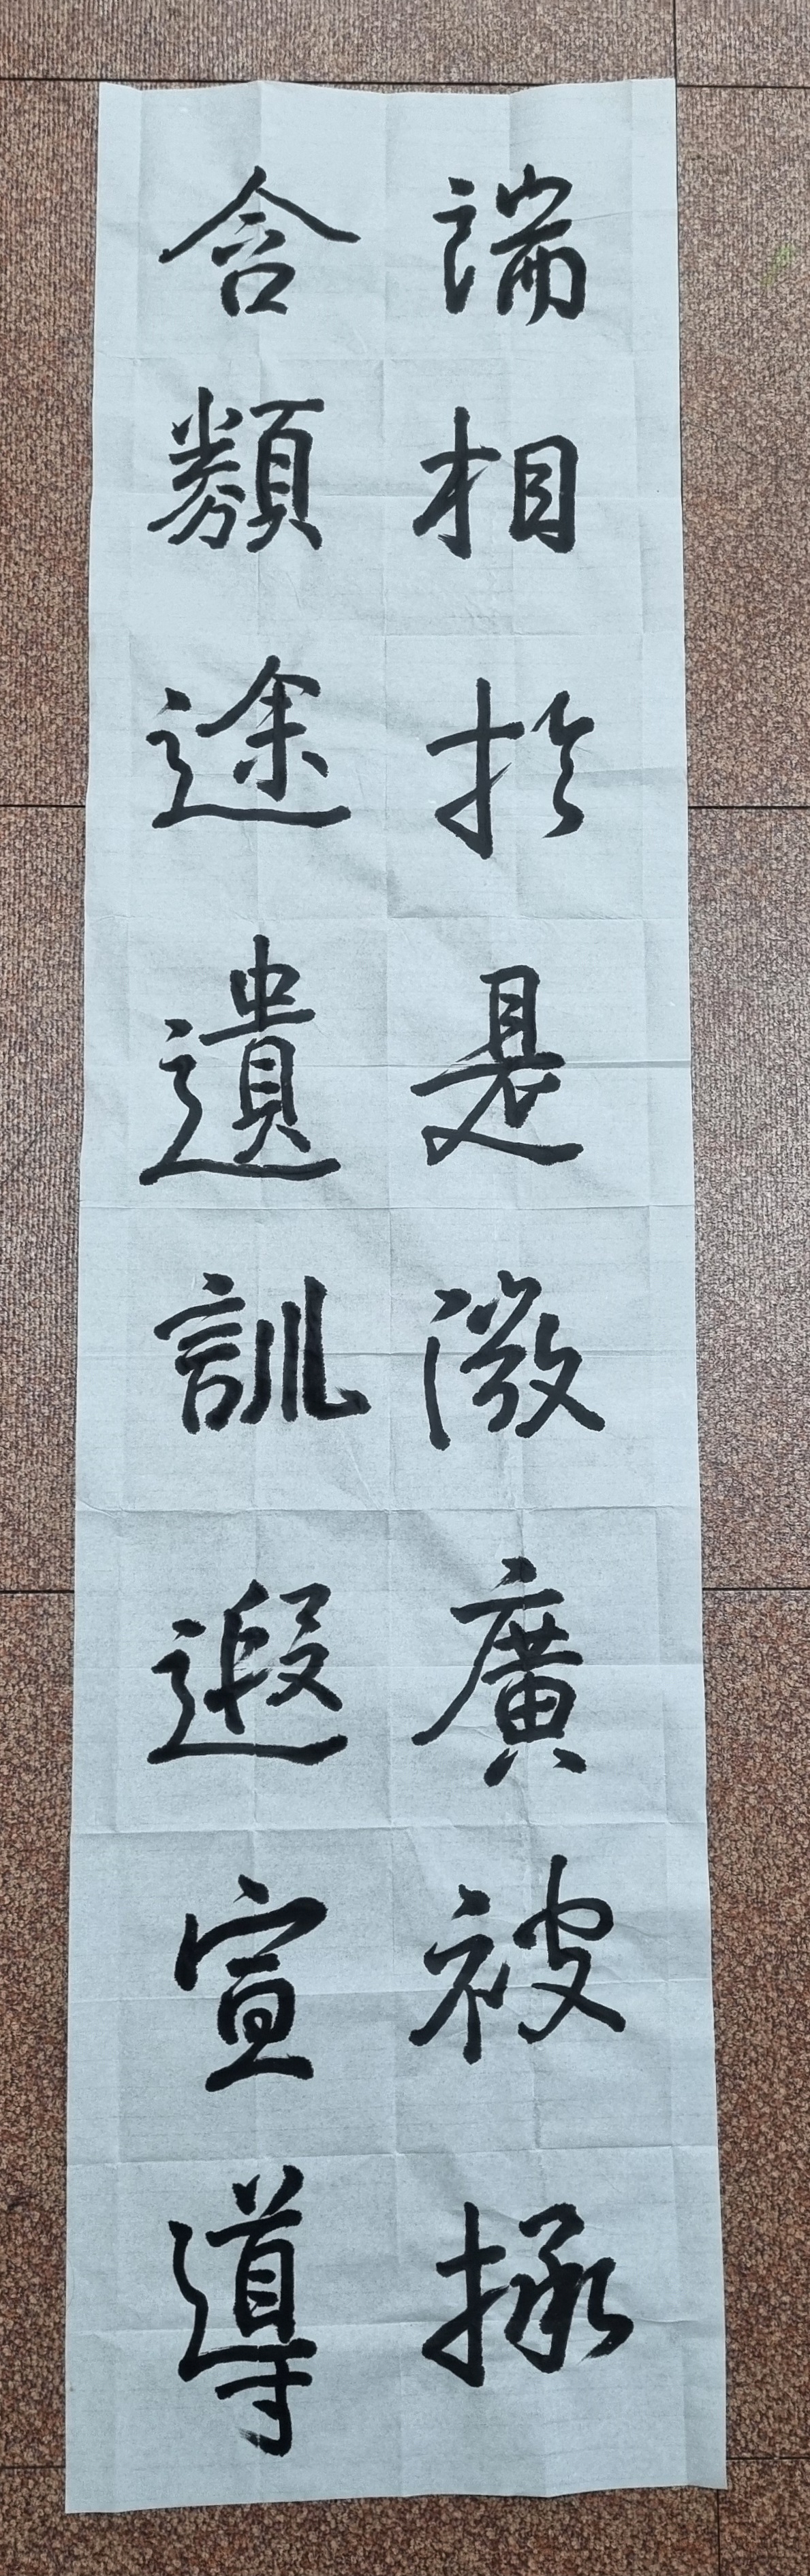 端相於是微廣被拯
含類途遺訓遐宣導